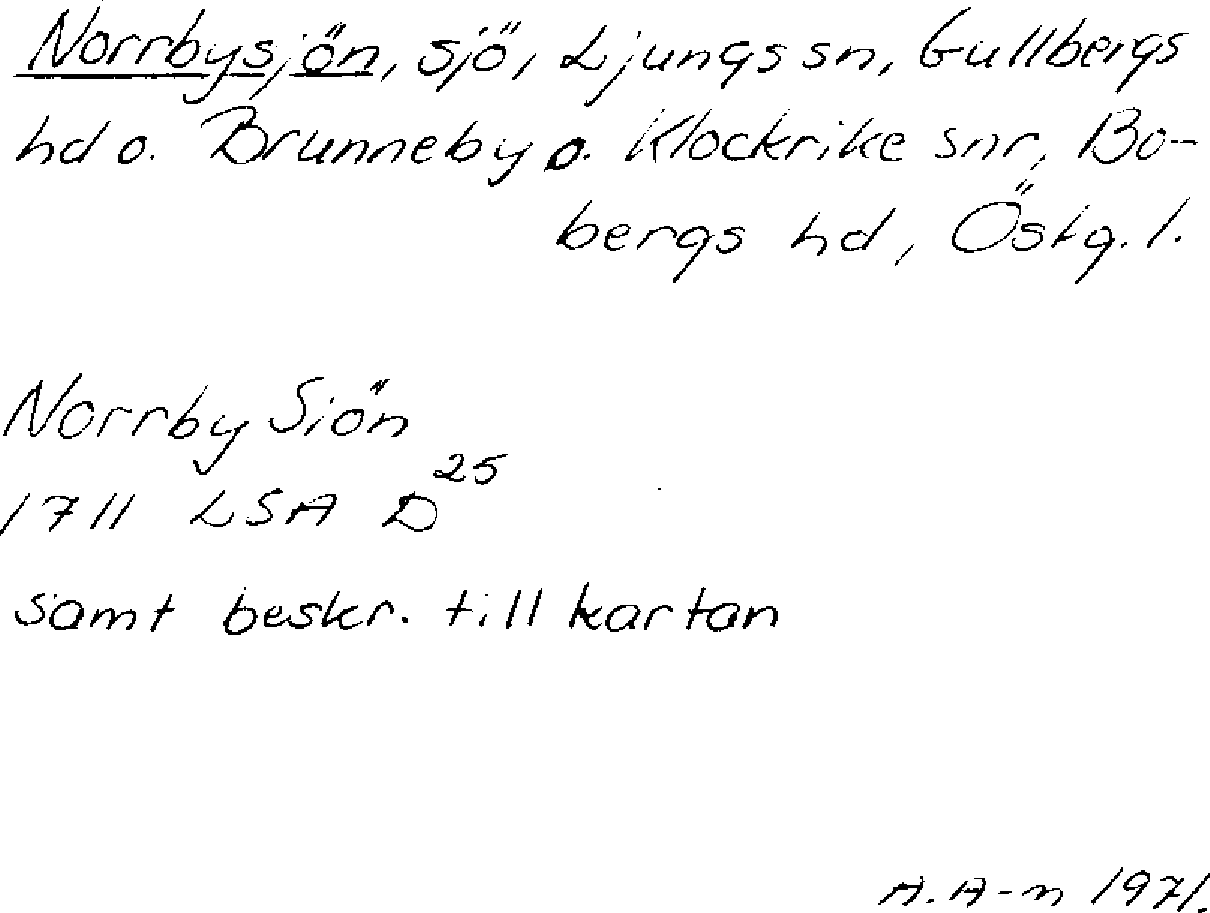 Norrbysjön, sjö, Ljungs sn, Gullbergs
hd o. Brunneby o. Klockrike snr, Bo-
bergs hd, Östg. l.
Norrby Siön
1711 LSA D25
samt beskr. till kartan
A. A-n 1971.